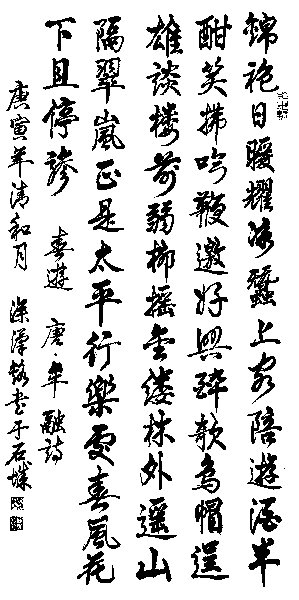 錦袍日暖耀冰蠶上客陪遊酒半
酣笑拂吟鞭邀好興醉欹烏帽逞
雄談楼前弱柳摇金縷林外遥山
隔翠嵐正是太平行樂處春風花
下且停驂 春遊 唐·牟融詩
庚寅年清和月 書于石